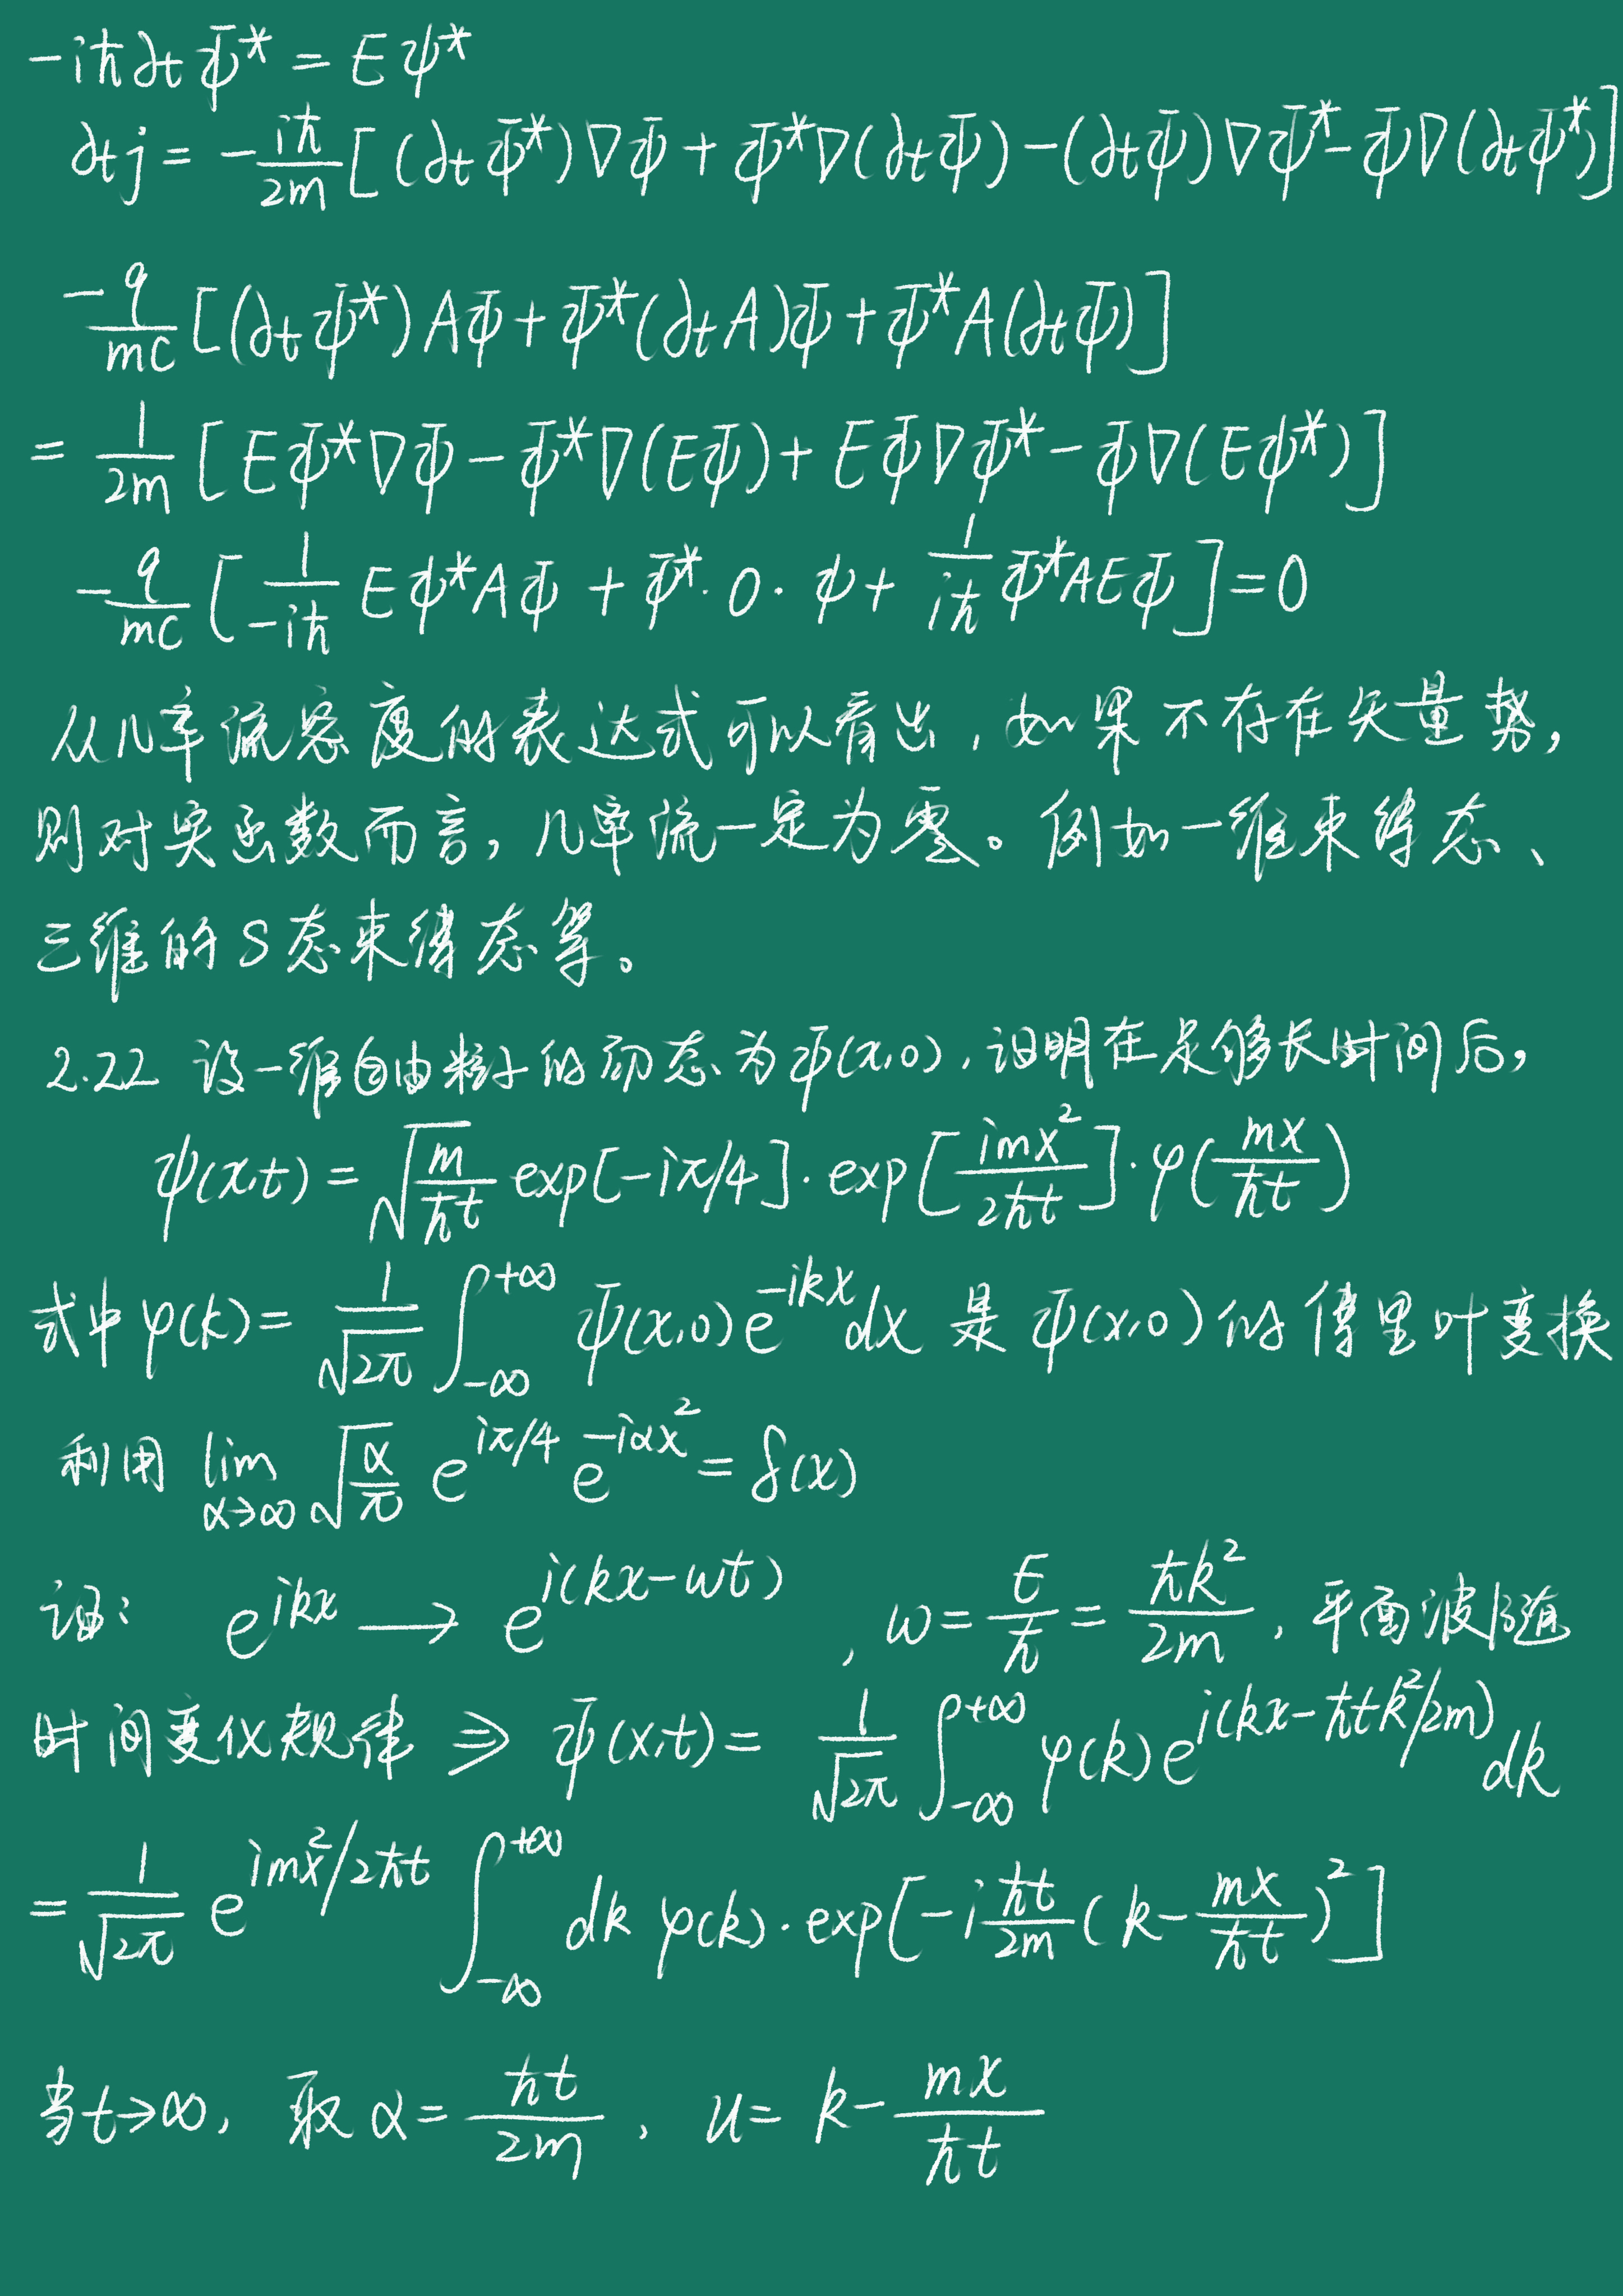 -iħ∂t ψ* = Eψ*
∂t j = -iħ/2m [(∂tψ*)∇ψ + ψ*∇(∂tψ) - (∂tψ)∇ψ* - ψ∇(∂tψ*)]
-q/mc [(∂tψ*)Aψ + ψ*(∂tA)ψ + ψ*A(∂tψ)]
= 1/2m [Eψ*∇ψ - ψ*∇(Eψ) + Eψ∇ψ* - ψ∇(Eψ*)]
-q/mc [1/-iħ Eψ*Aψ + ψ*·0·ψ + 1/iħ ψ*AEψ] = 0
从几率流密度的表达式可以看出，如果不存在矢量势，
则对实函数而言，几率流一定为零。例如一维束缚态、
三维的S态束缚态等。
2.22 设一维自由粒子的初态为ψ(x,0)，证明在足够长时间后，
ψ(x,t) = √(m/ħt) exp[-iπ/4]·exp[imx²/2ħt]·φ(mx/ħt)
式中φ(k) = 1/√2π ∫_{-∞}^{+∞} ψ(x,0)e^{-ikx}dx 是ψ(x,0)的傅里叶变换
利用 lim_{α→∞} √(α/π) e^{iπ/4} e^{-iαx²} = δ(x)
证: e^{ikx} → e^{i(kx-ωt)}, ω = E/ħ = ħk²/2m, 平面波随
时间变化规律 ⇒ ψ(x,t) = 1/√2π ∫_{-∞}^{+∞} φ(k)e^{i(kx-ħtk²/2m)}dk
= 1/√2π e^{imx²/2ħt} ∫_{-∞}^{+∞} dk φ(k)·exp[-i ħt/2m (k - mx/ħt)²]
当t→∞, 取α = ħt/2m, u = k - mx/ħt